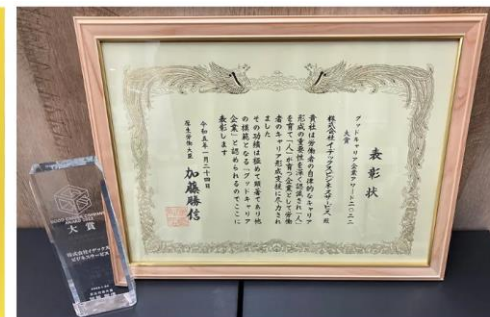 表彰状
グッドキャリア企業アワード二〇二二
大賞
株式会社イデックスビジネスサービス 殿
貴社は労働者の自律的なキャリア
形成の重要性を深く認識され「人」
を育て「人」が育つ企業として労働
者のキャリア形成支援に尽力され
ました
その功績は極めて顕著であり他
の模範となる「グッドキャリア
企業」と認められるのでここに
表彰します
令和五年一月二十四日
厚生労働大臣 加藤勝信
大賞
株式会社イデックス
ビジネスサービス